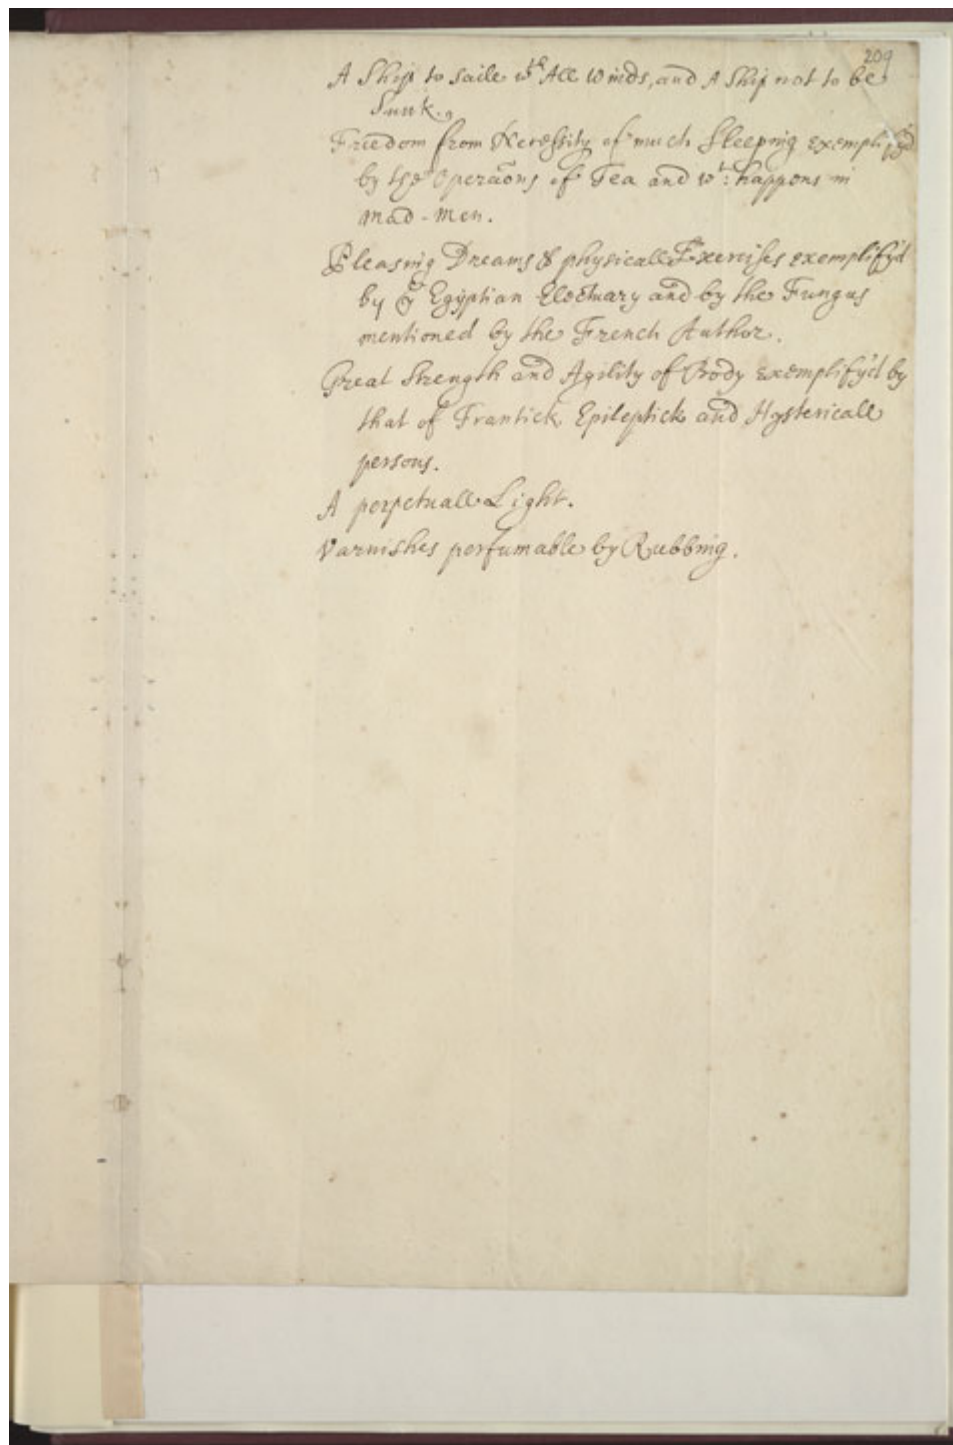 209
A Ship to saile wth All Winds, and A Ship not to be
Sunk.
Freedom from Necessity of much Sleeping exemplify'd
by the Operaõns of Tea and wt: happens in
mad-men.
Pleasing Dreams & physicall Exercises exemplify'd
by ye Egyptian Electuary and by the Fungus
mentioned by the French Author.
Great Strength and Agility of Body exemplify'd by
that of Frantick Epileptick and Hystericall
persons.
A perpetuall Light.
Varnishes perfumable by Rubbing.